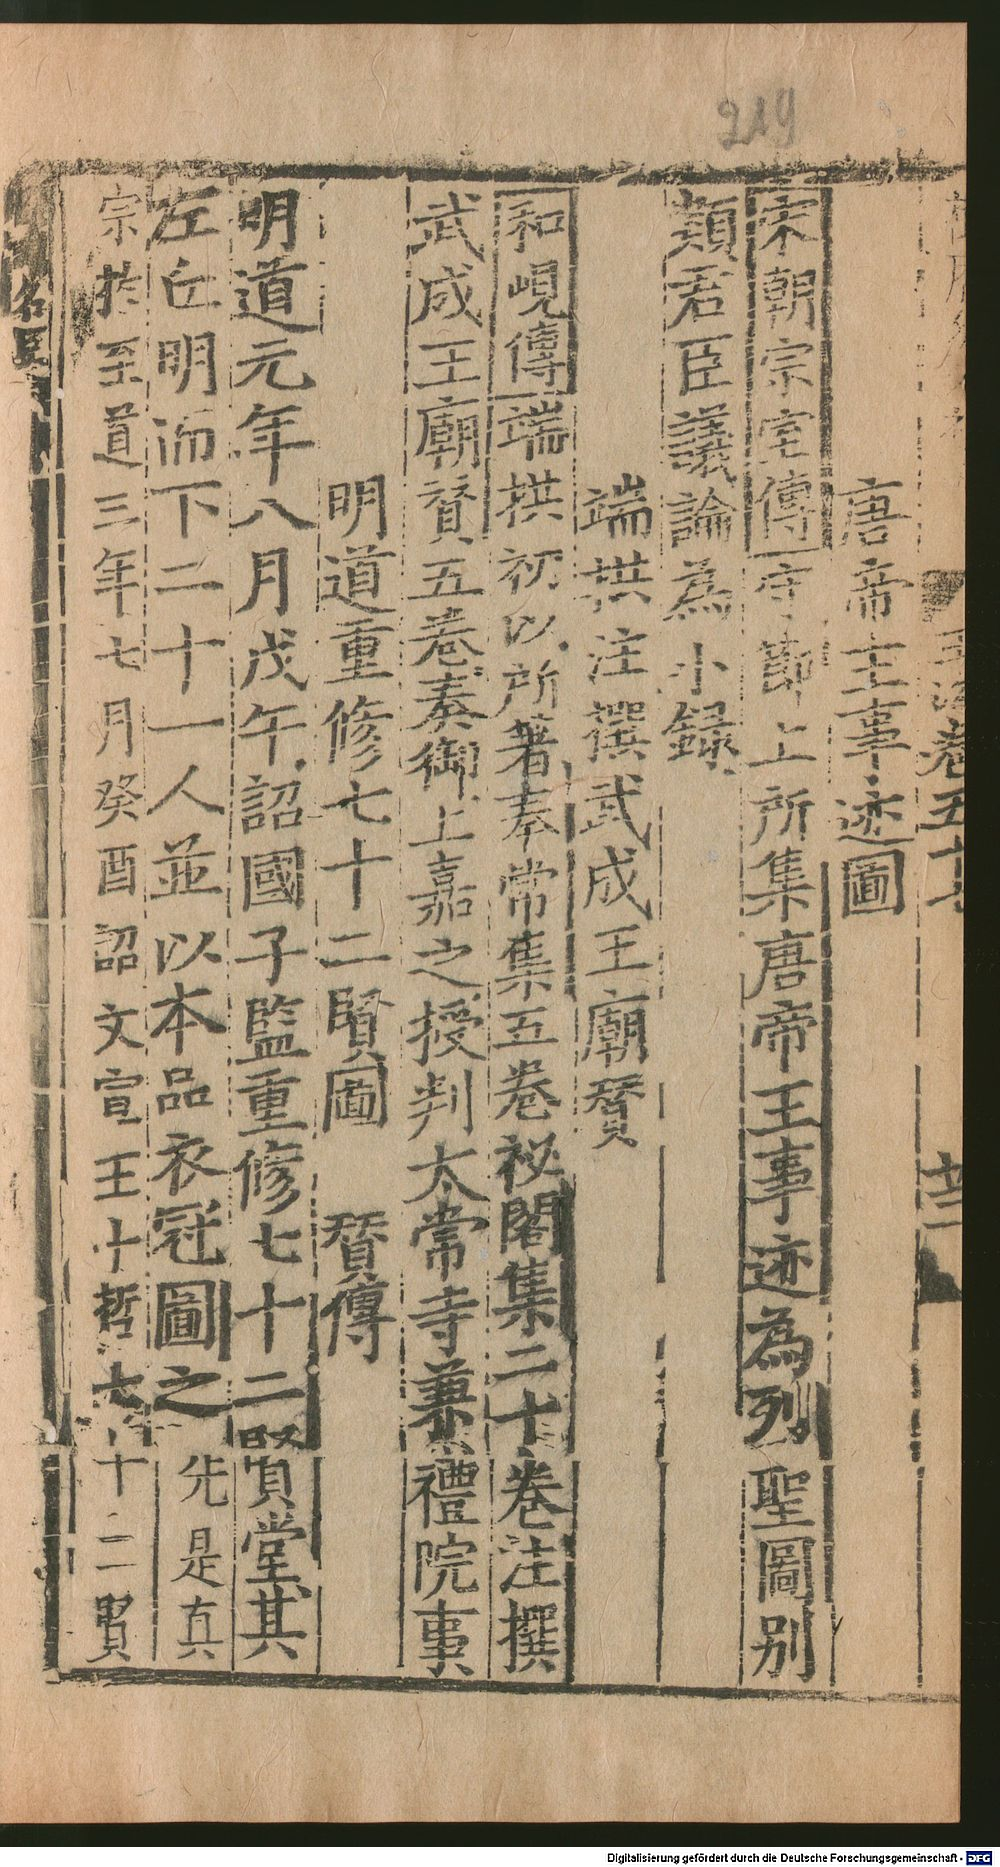 219
玉海卷五十
唐帝王事迹圖
宋朝宗室傳守節上所集唐帝王事迹為列聖圖別
類君臣議論為小録
端拱注撰武成王廟賛
和峴傳端拱初以所著奉常集五卷祕閣集二十卷注撰
武成王廟賛五卷奏御上嘉之授判太常寺兼禮院事
明道重修七十二賢圖 賛傳
明道元年八月戊午詔國子監重修七十二賢堂其
左丘明而下二十一人並以本品衣冠圖之先是真
宗於至道三年七月癸酉詔文宣王十哲七十二賢
名臣
Digitalisierung gefördert durch die Deutsche Forschungsgemeinschaft - DFG